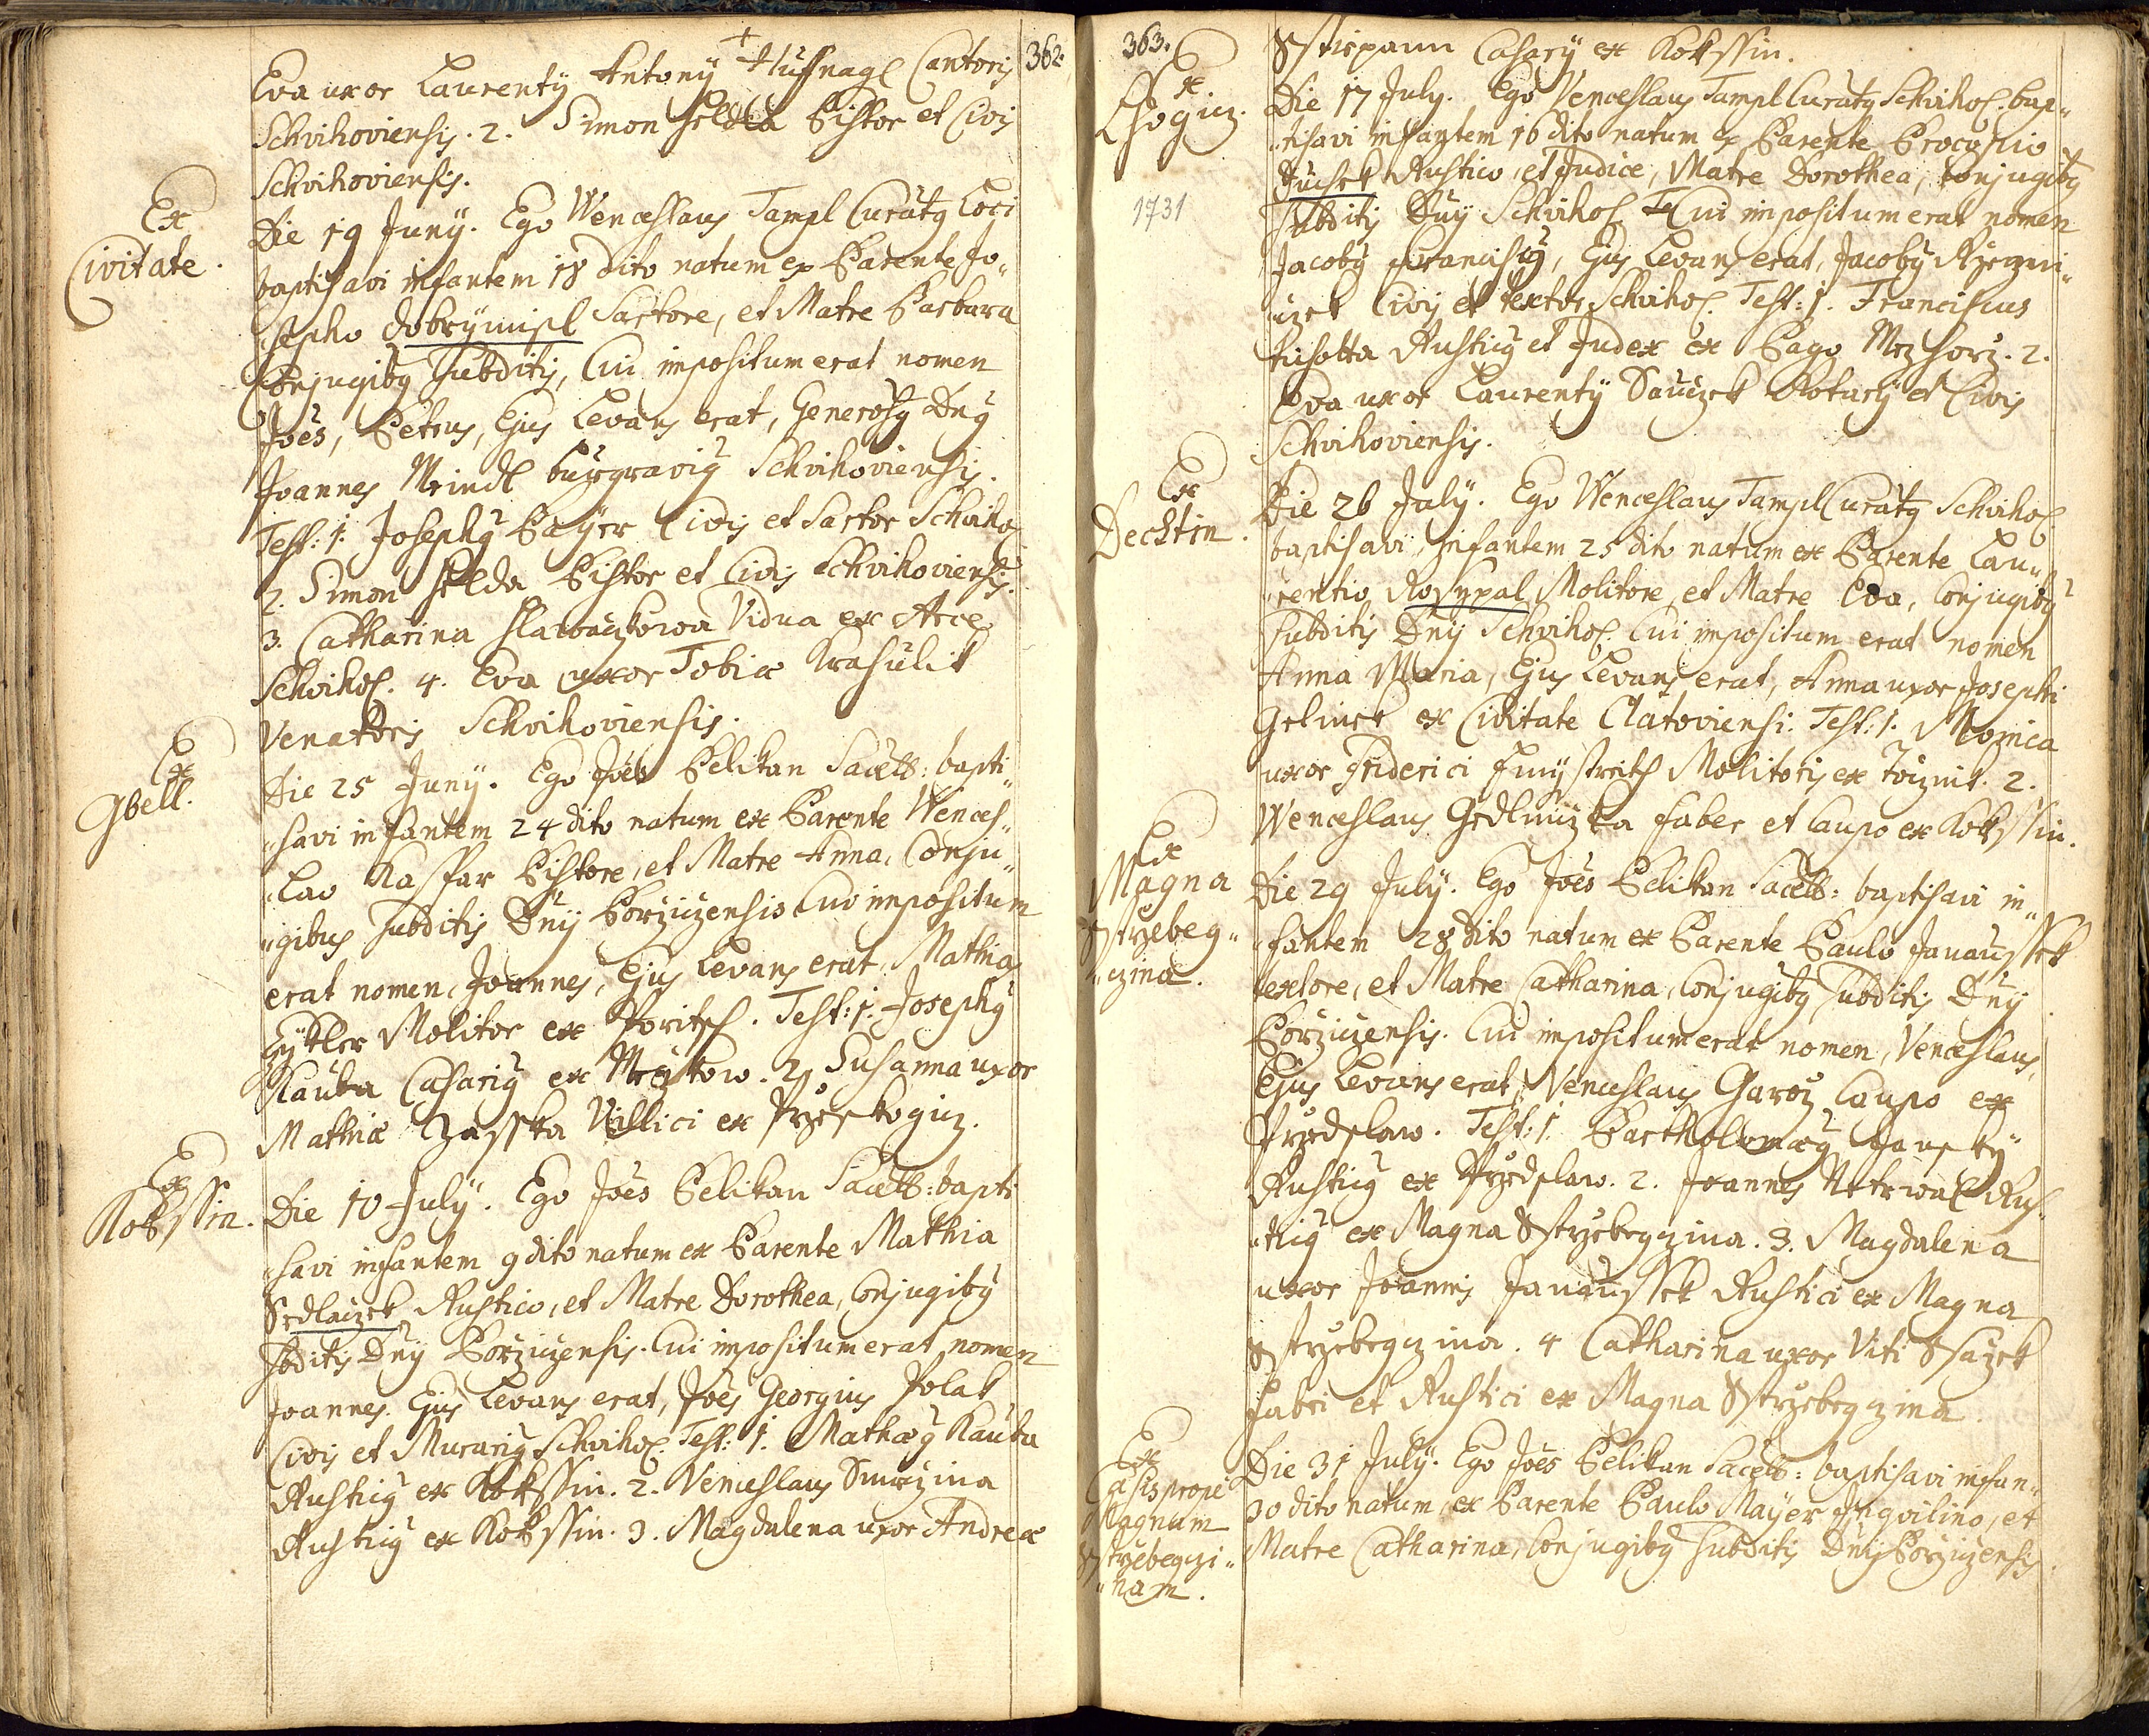 362.
Eva uxor Laurentÿ Antonÿ + Huffnagl Cantoris
Schvihoviensis. 2. Simon Pistor et Civis
Schvihoviensis.
Ex
Civitate.
Die 19 Junÿ. Ego Wenceslaus Tampl Curatq Loci
baptisavi infantem 18 dito natum ex Parente Jo„
„sepho dobrÿmisl Sartore, et Matre Barbara
Conjugibq Subditis, Cui impositum erat nomen
Joês, Petrus, Ejus Levans erat, Generosq Dnq
Joannes Meindl burgravig Schvihoviensis.
Test: 1. Josephq Baÿer Civis et Sartor Schviho
2. Simon Pistor et Civis Schvihoviensis.
3. Catharina Vidua ex Arce
Schvihoṽ. 4. Eva uxor Tobiæ Krasulik
Venatoris Schvihoviensis.
Ex
Gbell.
Die 25 Junÿ. Ego Joês Pelikan Sacell: bapti„
„savi infantem 24 dito natum ex Parente Wences„
„lao Kaspar Pistore, et Matre Anna, Conju„
„gibus Subditis Dnÿ Borziczensis Cui impositum
erat nomen, Joannes, Ejus Levans erat Mathias
Molitor ex Poritsch. Test: 1. Josephq
Kauba Casariq ex . 2. Susanna uxor
Mathiæ Zasska Villici ex .
Ex
Kokssin.
Die 10 Julÿ. Ego Joês Pelikan Sacell: bapti
„savi infantem 9 dito natum ex Parente Mathia
Sedlaczek Rustico, et Matre Dorothea, Conjugibq
Sbditis Dnÿ Borziczensis. Cui impositum erat nomen
Joannes. Ejus Levans erat, Joês Georgius Polak
Civis et Murariq Schvihoṽ. Test: 1. Mathæq Kauba
Rusticq ex Kokssin. 2. Venceslaus
Rusticq ex Kokssin. 3. Magdalena uxor Andreæ
363.
Sstiepann Casarÿ ex Kokssin.
Ex
1731
Die 17 Julÿ. Ego Venceslaus Tampl Curatq Schvihoṽ. bap„
„tisavi infantem 16 dito natum ex Parente Procopio
Rustico, et Judice, Matre Dorothea, Conjugibq
Subditis Dnÿ Schvihoṽ. Cui impositum erat nomen
Jacobq Franciscq, Ejus Levans erat, Jacobq
Civis et textor Schvihoṽ. Test: 1. Franciscus
Rusticq et Judex ex Pago . 2.
Eva uxor Laurentÿ Sauczek Notarÿ et Civis
Schvihoviensis.
Ex
Dechtin.
Die 26 Julÿ. Ego Wenceslaus Tampl Curatq Schvihoṽ
baptisavi infantem 25 dito natum ex Parente Lau„
„rentio Rosÿpal Molitore, et Matre Eva, Conjugibq
Subditis Dnÿ Schvihoṽ. Cui impositum erat nomen
Anna Maria, Ejus Levans erat, Anna uxor Josephi
Gelinek ex Civitate Clatoviensi: Test: 1. Monica
uxor Friderici Molitoris ex . 2.
Wenceslaus Gedliczka Faber et Caupo ex Kokssin.
Ex
Magna
Sstrzebeg„
„czina.
Die 29 Julÿ. Ego Joês Pelikan Sacell: baptisavi in„
„fantem 28 dito natum ex Parente Paulo Janaussek
textore, et Matre Catharina, Conjugibq Subditis Dnÿ
Borziczensis. Cui impositum erat nomen, Venceslaus,
Ejus Levans erat, Venceslaus Garoz Caupo ex
Przedslaw. Test: 1. Bartholomæq
Rusticq ex Przedslaw. 2. Joannes Netrwal Rus„
„ticq ex Magna Sstrzebegczina. 3. Magdalena
uxor Joannis Janaussek Rustici ex Magna
Sstrzebegczina. 4 Catharina uxor Viti
Fabri et Rustici ex Magna Sstrzebegczina.
Ex
Casis prope
Magnam
Sstrzebegczi„
„nam.
Die 31 Julÿ. Ego Joês Pelikan Sacell: baptisavi infan„
30 dito natum, ex Parente Paulo Maÿer Inqvilino, et
Matre Catharina, Conjugibq Subditis Dnÿ Borziczensis